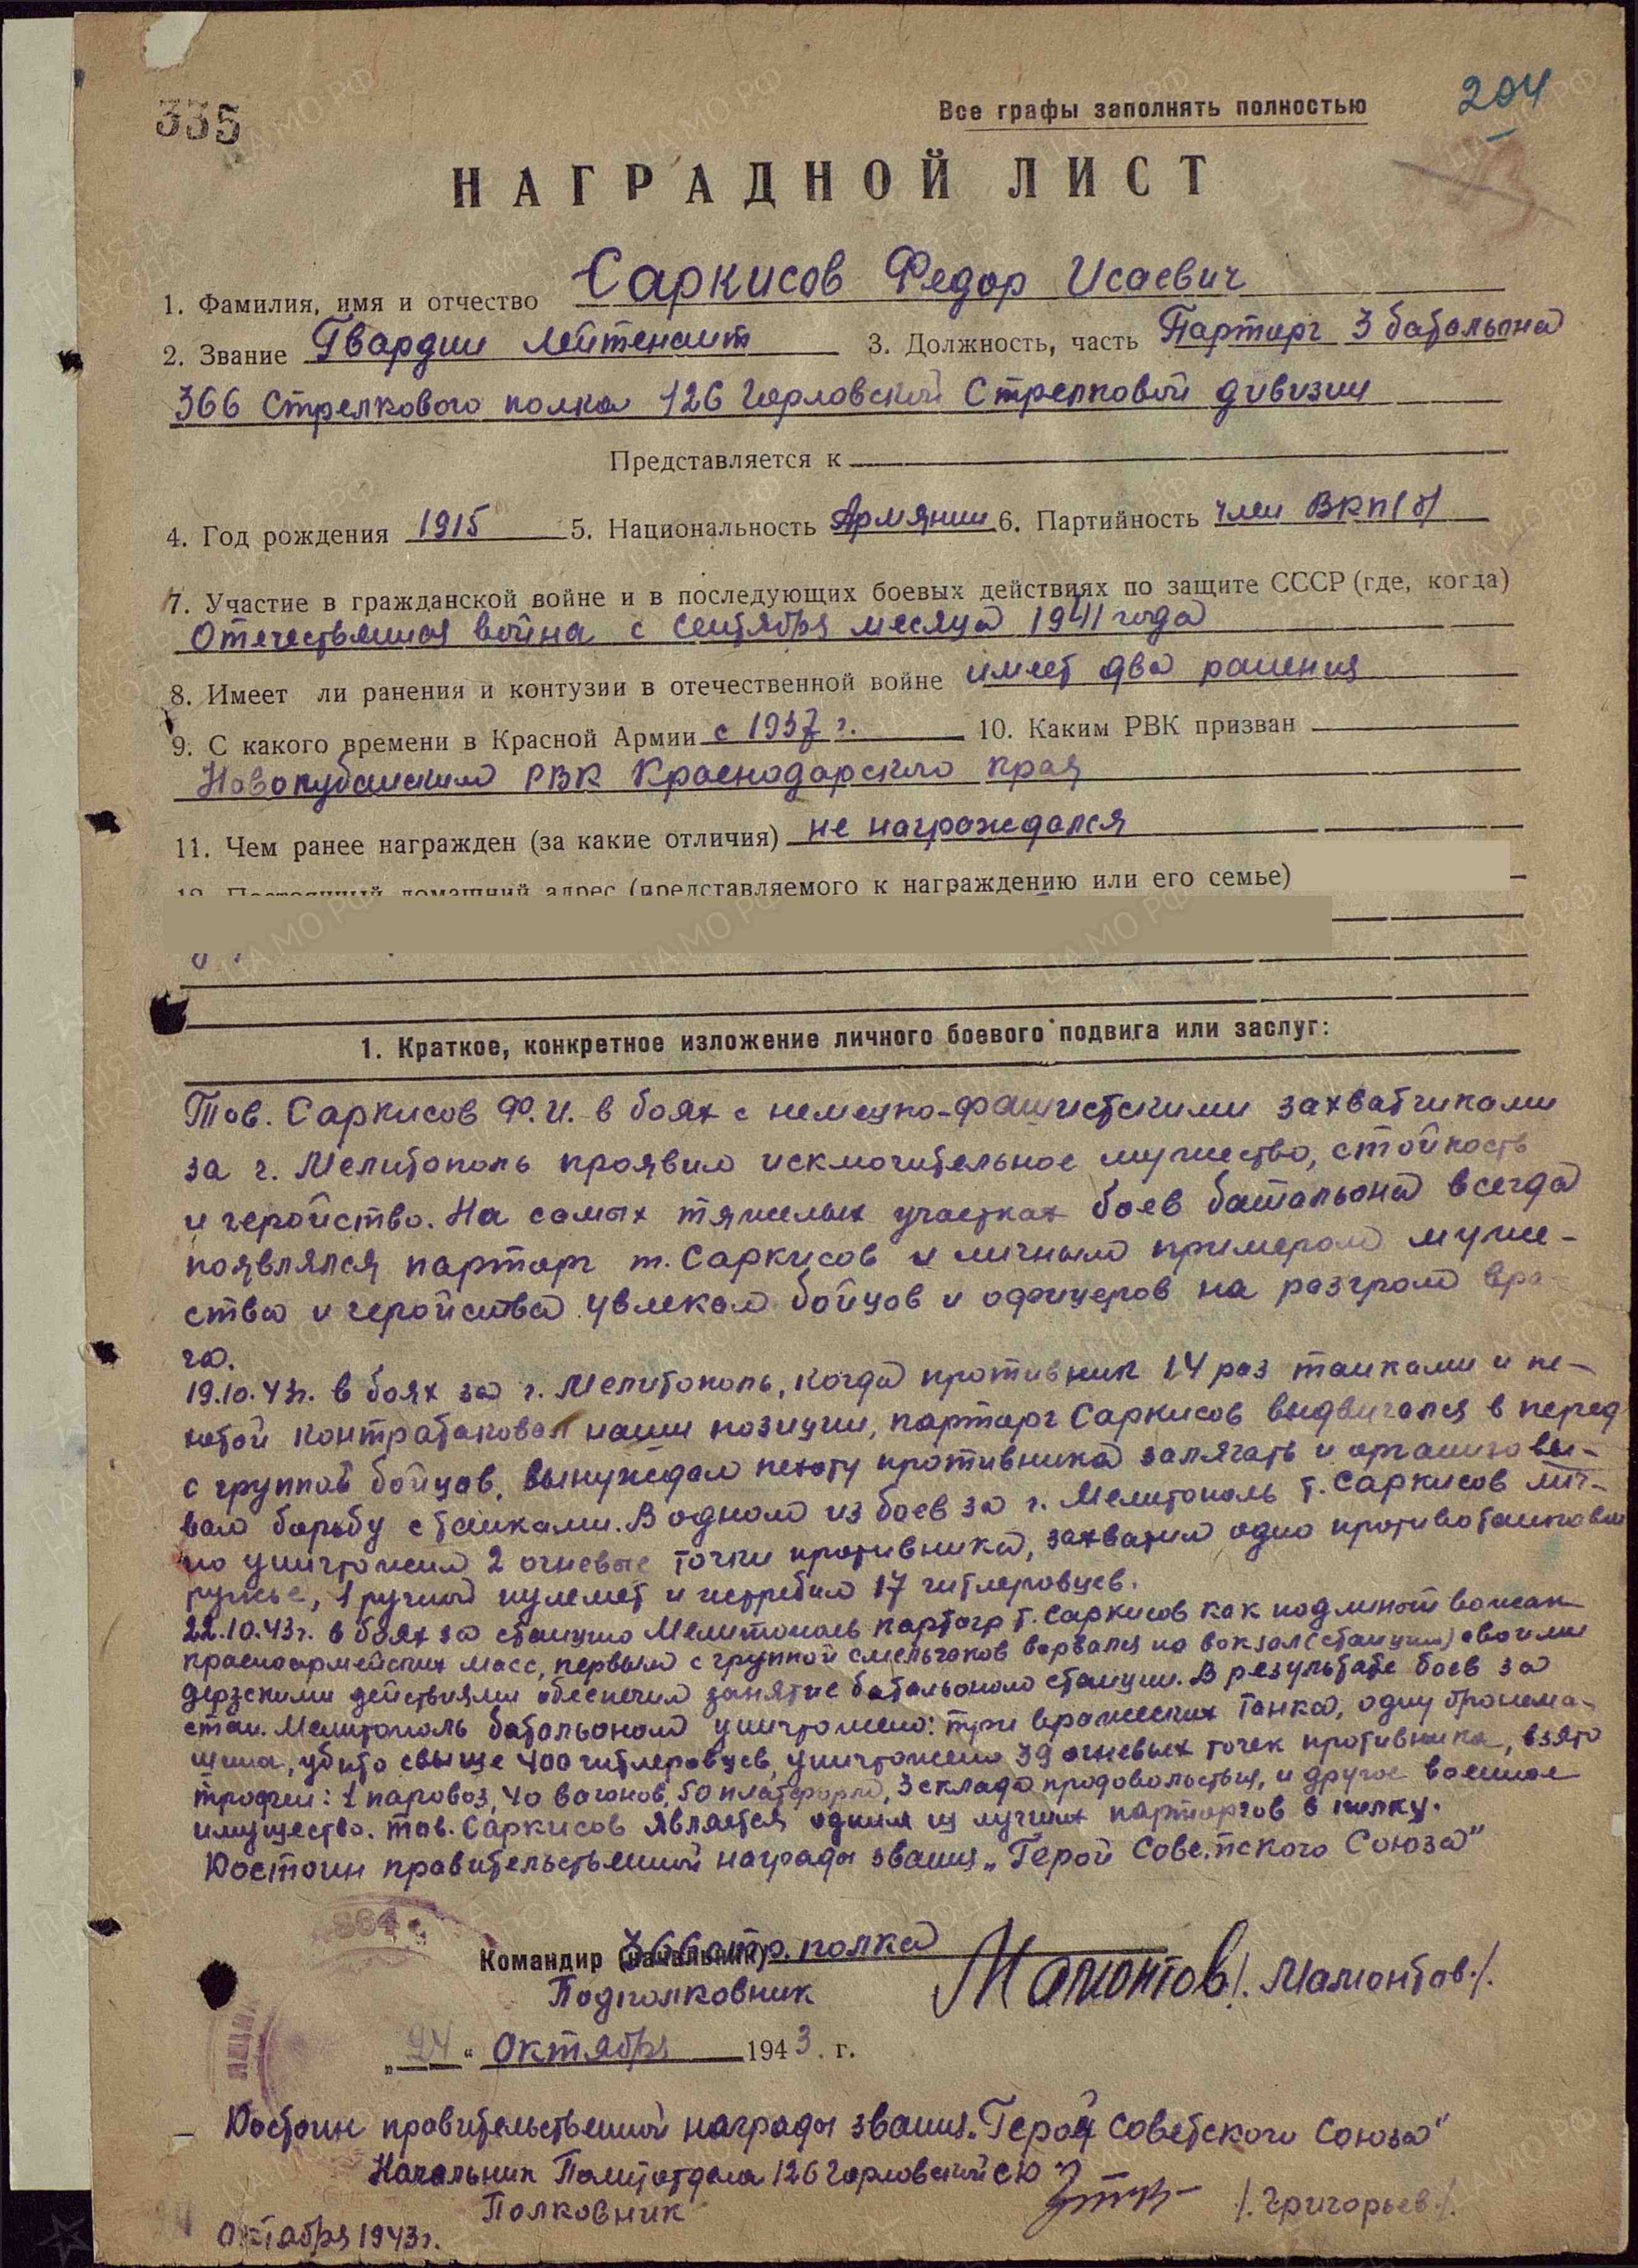 335
Все графы заполнять полностью
204
НАГРАДНОЙ ЛИСТ
1. Фамилия, имя и отчество Саркисов Федор Исаевич
2. Звание Гвардии лейтенант 3. Должность, часть Парторг 3 батальона
366 Стрелкового полка 126 Горловской Стрелковой дивизии
Представляется к
4. Год рождения 1915 5. Национальность Армянин 6. Партийность член ВКП(б)
7. Участие в гражданской войне и в последующих боевых действиях по защите СССР (где, когда)
Отечественная война с сентября месяца 1941 года
8. Имеет ли ранения и контузии в отечественной войне имеет два ранения
9. С какого времени в Красной Армии с 1937 г. 10. Каким РВК призван
Новокубанским РВК Краснодарского края
11. Чем ранее награжден (за какие отличия) не награждался
12. Постоянный домашний адрес (представляемого к награждению или его семье)
1. Краткое, конкретное изложение личного боевого подвига или заслуг:
Тов. Саркисов Ф.И. в боях с немецко-фашистскими захватчиками
за г. Мелитополь проявил исключительное мужество, стойкость
и геройство. На самых тяжелых участках боев батальона всегда
появлялся парторг т. Саркисов и личным примером муже-
ства и геройства увлекал бойцов и офицеров на разгром вра-
га.
19.10.43г. в боях за г. Мелитополь, когда противник 14 раз танками и пе-
хотой контратаковал наши позиции, парторг Саркисов выдвигался в перед
с группой бойцов, вынуждал пехоту противника залягать и организовы-
вал борьбу с танками. В одном из боев за г. Мелитополь т. Саркисов лич-
но уничтожил 2 огневые точки противника, захватил одно противотанковое
ружье, 1 ручной пулемет и истребил 17 гитлеровцев.
22.10.43г. в боях за станцию Мелитополь парторг т. Саркисов как подлиной вожак
красноармейских масс, первым с группой смельчаков ворвался на вокзал (станции) своими
дерзскими действиями обеспечил занятие батальоном станции. В результате боев за
стан. Мелитополь батальоном уничтожено: три вражеских танка, одну бронема-
шина, убито свыше 400 гитлеровцев, уничтожено 39 огневых точек противника, взято
трофеи: 1 паровоз, 40 вагонов, 50 платформ, 3 склада продовольствия, и другое военное
имущество. тов. Саркисов является одним из лучших парторгов в полку.
Достоин правительственной награды звания „Герой Советского Союза"
Командир (начальник) 366 стр. полка
Подполковник Мамонтов /. Мамонтов ./.
„24" Октября 1943 г.
Достоин правительственной награды звания „Герой Советского Союза"
Начальник Политотдела 126 Горловской СД
Полковник /. Григорьев ./.
Октября 1943г.